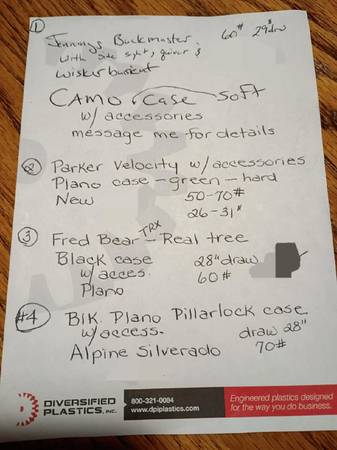 ①
Jennings Buckmaster 60# 29"drw
with side sight, quiver &
wisker biscuit
CAMO Case Soft
w/ accessories
message me for details
② Parker Velocity w/ accessories
Plano case - green - hard
New 50-70#
26-31"
③ Fred Bear - TRX - Real tree
Black case 28" draw
w/ acces. 60#
Plano
#4 Blk. Plano Pillarlock case
w/ access. draw 28"
Alpine Silverado 70#
DIVERSIFIED PLASTICS, INC.
800-321-0084
www.dpiplastics.com
Engineered plastics designed
for the way you do business.